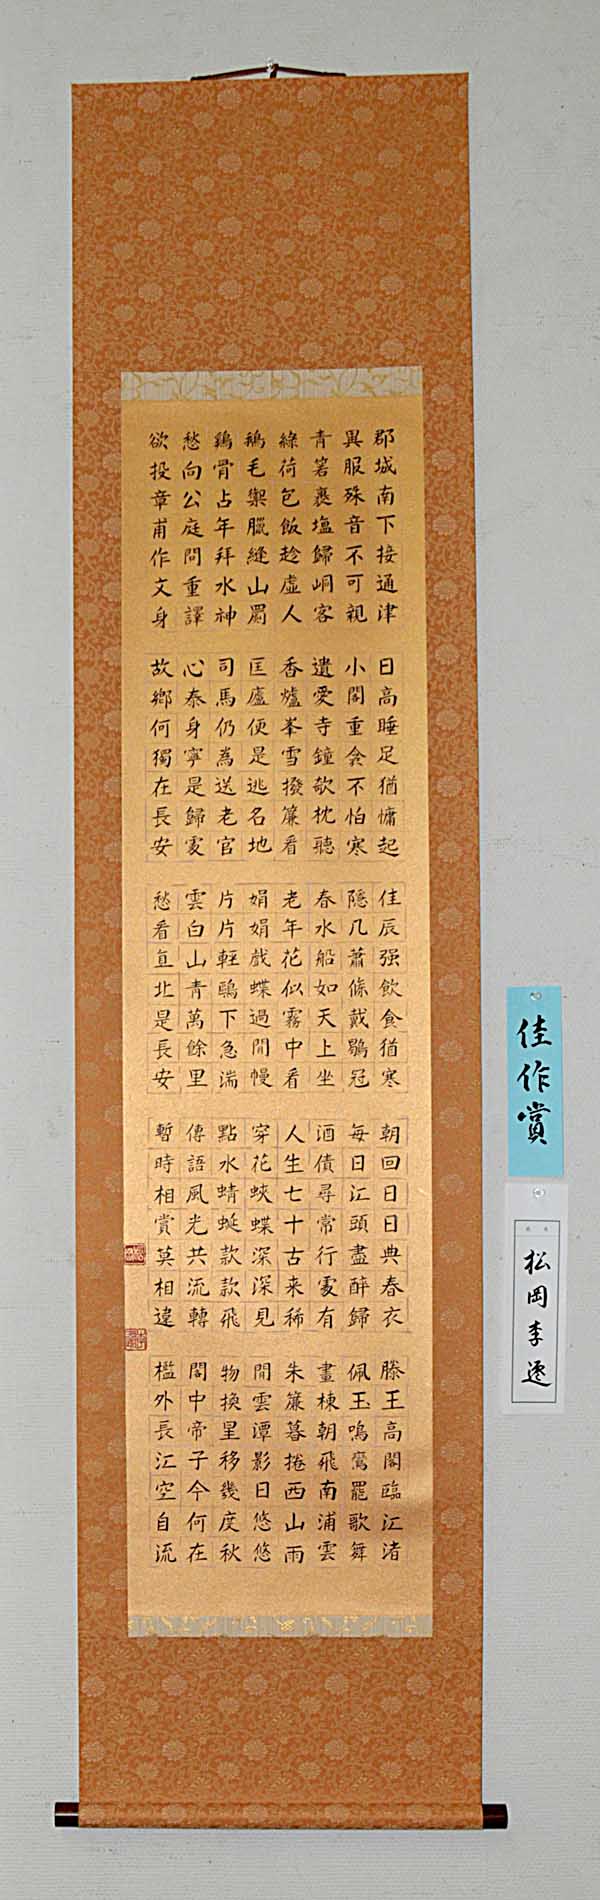 郡城南下接通津
異服殊音不可親
青箬裹塩歸峒客
綠荷包飯趁虛人
鵝毛禦臘縫山罽
鷄骨占年拜水神
愁向公庭問重譯
欲投章甫作文身
日高睡足猶慵起
小閣重衾不怕寒
遺愛寺鐘欹枕聽
香爐峯雪撥簾看
匡廬便是逃名地
司馬仍為送老官
心泰身寧是歸處
故鄉何獨在長安
佳辰强飲食猶寒
隱几蕭條戴鶡冠
春水船如天上坐
老年花似霧中看
娟娟戲蝶過閒幔
片片輕鷗下急湍
雲白山青萬餘里
愁看直北是長安
朝回日日典春衣
每日江頭盡醉歸
酒債尋常行處有
人生七十古来稀
穿花蛺蝶深深見
點水蜻蜓款款飛
傳語風光共流轉
暫時相賞莫相違
滕王高閣臨江渚
佩玉鳴鸞罷歌舞
畫棟朝飛南浦雲
朱簾暮捲西山雨
閒雲潭影日悠悠
物換星移幾度秋
閣中帝子今何在
檻外長江空自流
佳作賞
松岡李遷